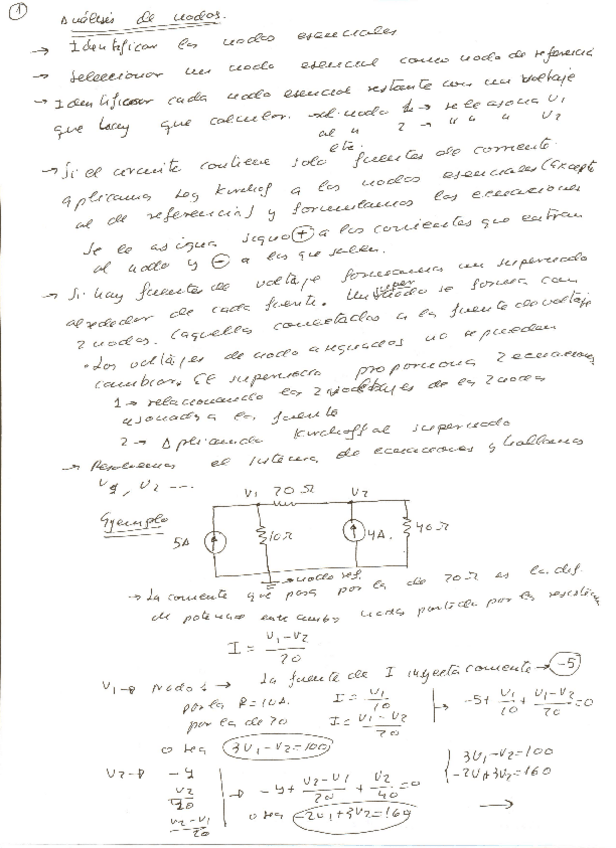 1
Análisis de nodos.
→ Identificar los nodos esenciales
→ Seleccionar un nodo esencial como nodo de referencia
→ Identificar cada nodo esencial restante con un voltaje
que hay que calcular. al nodo 1 → se le asigna V1
al " 2 → " " " V2
etc.
→ Si el circuito contiene solo fuentes de corriente.
aplicamos Ley Kirchof a los nodos esenciales (excepto
al de referencia) y formulamos las ecuaciones
Se le asigna signo + a las corrientes que entran
al nodo y - a las que salen.
→ Si hay fuentes de voltaje formamos un supernodo
alrededor de cada fuente. Un super nodo se forma con
2 nodos. (aquellos conectados a la fuente de voltaje
• Los voltajes de nodo asignados no se pueden
cambiar. El supernodo proporciona 2 ecuaciones
1 → relacionando los 2 voltajes de los 2 nodos
asociados a la fuente
2 → Aplicando Kirchoff al supernodo
→ Resolvemos el sistema de ecuaciones y hallamos
V1, V2 ...
Ejemplo
V1 20 Ω V2
5A 10Ω 4A. 40Ω
→ nodo ref.
→ La corriente que pasa por la de 20Ω es la dif.
de potencial entre ambos nodos partida por la resistencia
I = V1-V2 / 20
V1 → Nodo → La fuente de I inyecta corriente → -5
por la R=10Ω. I = V1/10
por la de 20 I = V1-V2/20
→ -5 + V1/10 + V1-V2/20 = 0
o sea 3V1-V2=100
V2 → -4
V2/40
V2-V1/20
→ -4 + V2-V1/20 + V2/40 = 0
o sea -2V1+3V2=160
3V1-V2=100
-2V1+3V2=160
→